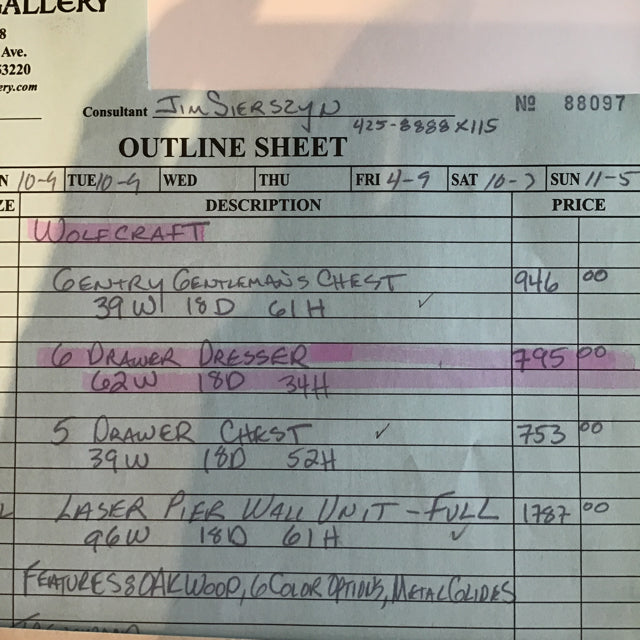 GALLERY
8
Ave.
53220
ery.com
Consultant JIM SIERSZYN
425-8888 x115
No 88097
OUTLINE SHEET
N 10-9 TUE 10-9 WED THU FRI 4-9 SAT 10-5 SUN 11-5
ZE DESCRIPTION PRICE
WOLFCRAFT
GENTRY GENTLEMAN'S CHEST 946 00
39W 18D 61H ✓
6 DRAWER DRESSER 795 00
62W 18D 34H
5 DRAWER CHEST ✓ 753 00
39W 18D 52H
LASER PIER WALL UNIT - FULL 1787 00
96W 18D 61H ✓
FEATURES: OAK WOOD, 6 COLOR OPTIONS, METAL GLIDES